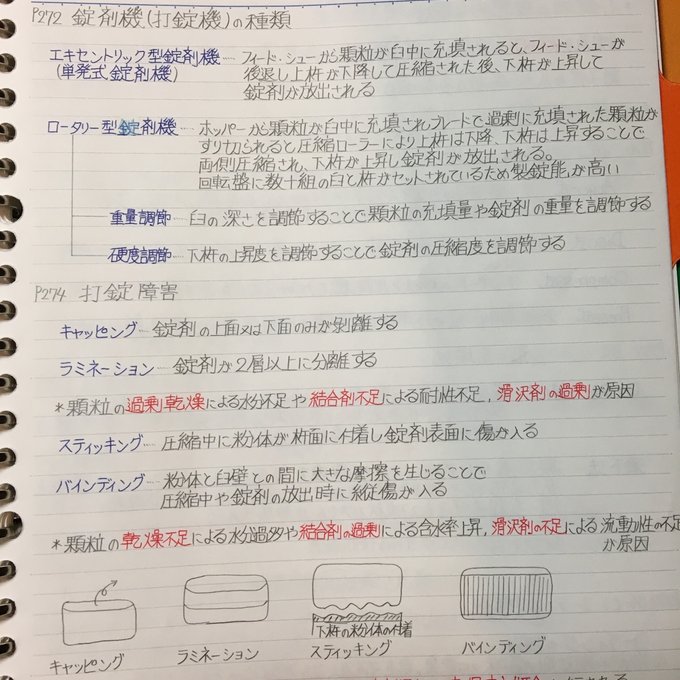 P272 錠剤機(打錠機)の種類
エキセントリック型錠剤機… フィード・シューから顆粒が臼中に充填されると、フィード・シューが
(単発式錠剤機) 後退し上杵が下降して圧縮された後、下杵が上昇して
錠剤が放出される
ロータリー型錠剤機… ホッパーから顆粒が臼中に充填されブレードで過剰に充填された顆粒が
すり切られると圧縮ローラーにより上杵は下降、下杵は上昇することで
両側圧縮され、下杵が上昇し錠剤が放出される。
回転盤に数十組の臼と杵がセットされているため製錠能が高い
重量調節… 臼の深さを調節することで顆粒の充填量や錠剤の重量を調節する
硬度調節… 下杵の上昇度を調節することで錠剤の圧縮度を調節する
P274 打錠障害
キャッピング… 錠剤の上面又は下面のみが剥離する
ラミネーション… 錠剤が2層以上に分離する
*顆粒の過剰乾燥による水分不足や結合剤不足による耐性不足,滑沢剤の過剰が原因
スティッキング… 圧縮中に粉体が杵面に付着し錠剤表面に傷が入る
バインディング… 粉体と臼壁との間に大きな摩擦を生じることで
圧縮中や錠剤の放出時に縦傷が入る
*顆粒の乾燥不足による水分過多や結合剤の過剰による含水率上昇,滑沢剤の不足による流動性の不足
が原因
下杵の粉体の付着
キャッピング ラミネーション スティッキング バインディング